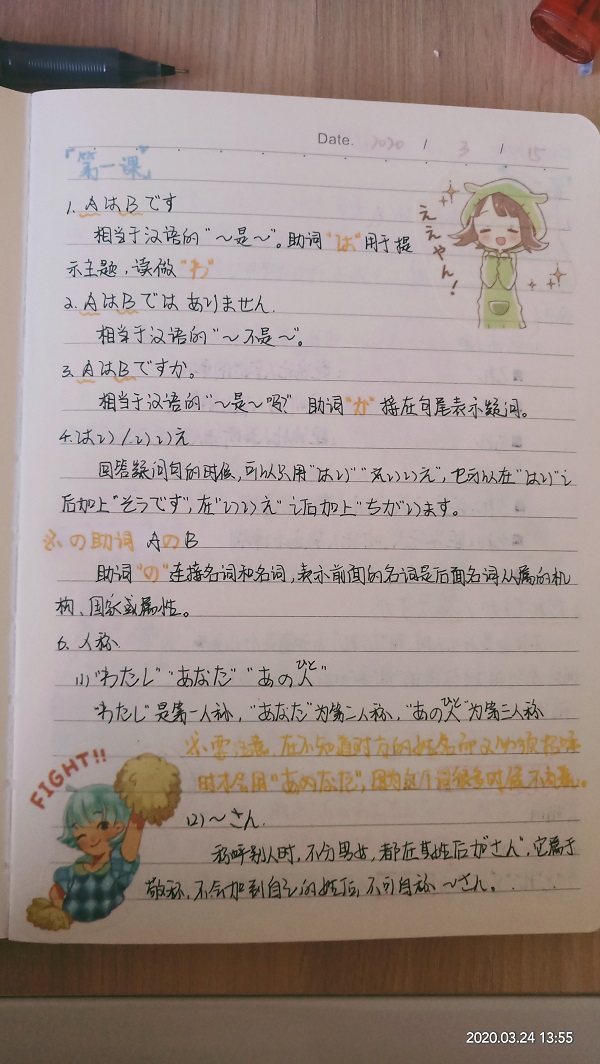 Date. 2020 / 3 / 15
『第一课』
1. AはBです
相当于汉语的"～是～"。助词"は"用于提
示主题，读做"わ"
ええやん!
2. AはBでは ありません.
相当于汉语的"～不是～"。
3. AはBですか。
相当于汉语的"～是～吗?" 助词"か"接在句尾表示疑问。
4. はい / いいえ
回答疑问句的时候，可以只用"はい" "いいえ"，也可以在"はい"之
后加上"そうです"，在"いいえ"之后加上"ちがいます。
の助词 AのB
助词"の"连接名词和名词，表示前面的名词是后面名词从属的机
构、国家或属性。
6. 人称.
(1) "わたし" "あなた" "あの人(ひと)"
"わたし"是第一人称，"あなた"为第二人称，"あの人(ひと)"为第三人称
※需注意，在不知道对方的姓名而又必须
时才会用"あなた"，因为这个词很多时候不
FIGHT!!
(2) ～さん.
称呼别人时，不分男女，都在其姓后加"さん"，它属于
敬称，不会加到自己的姓后，不可自称～さん。
2020.03.24 13:55